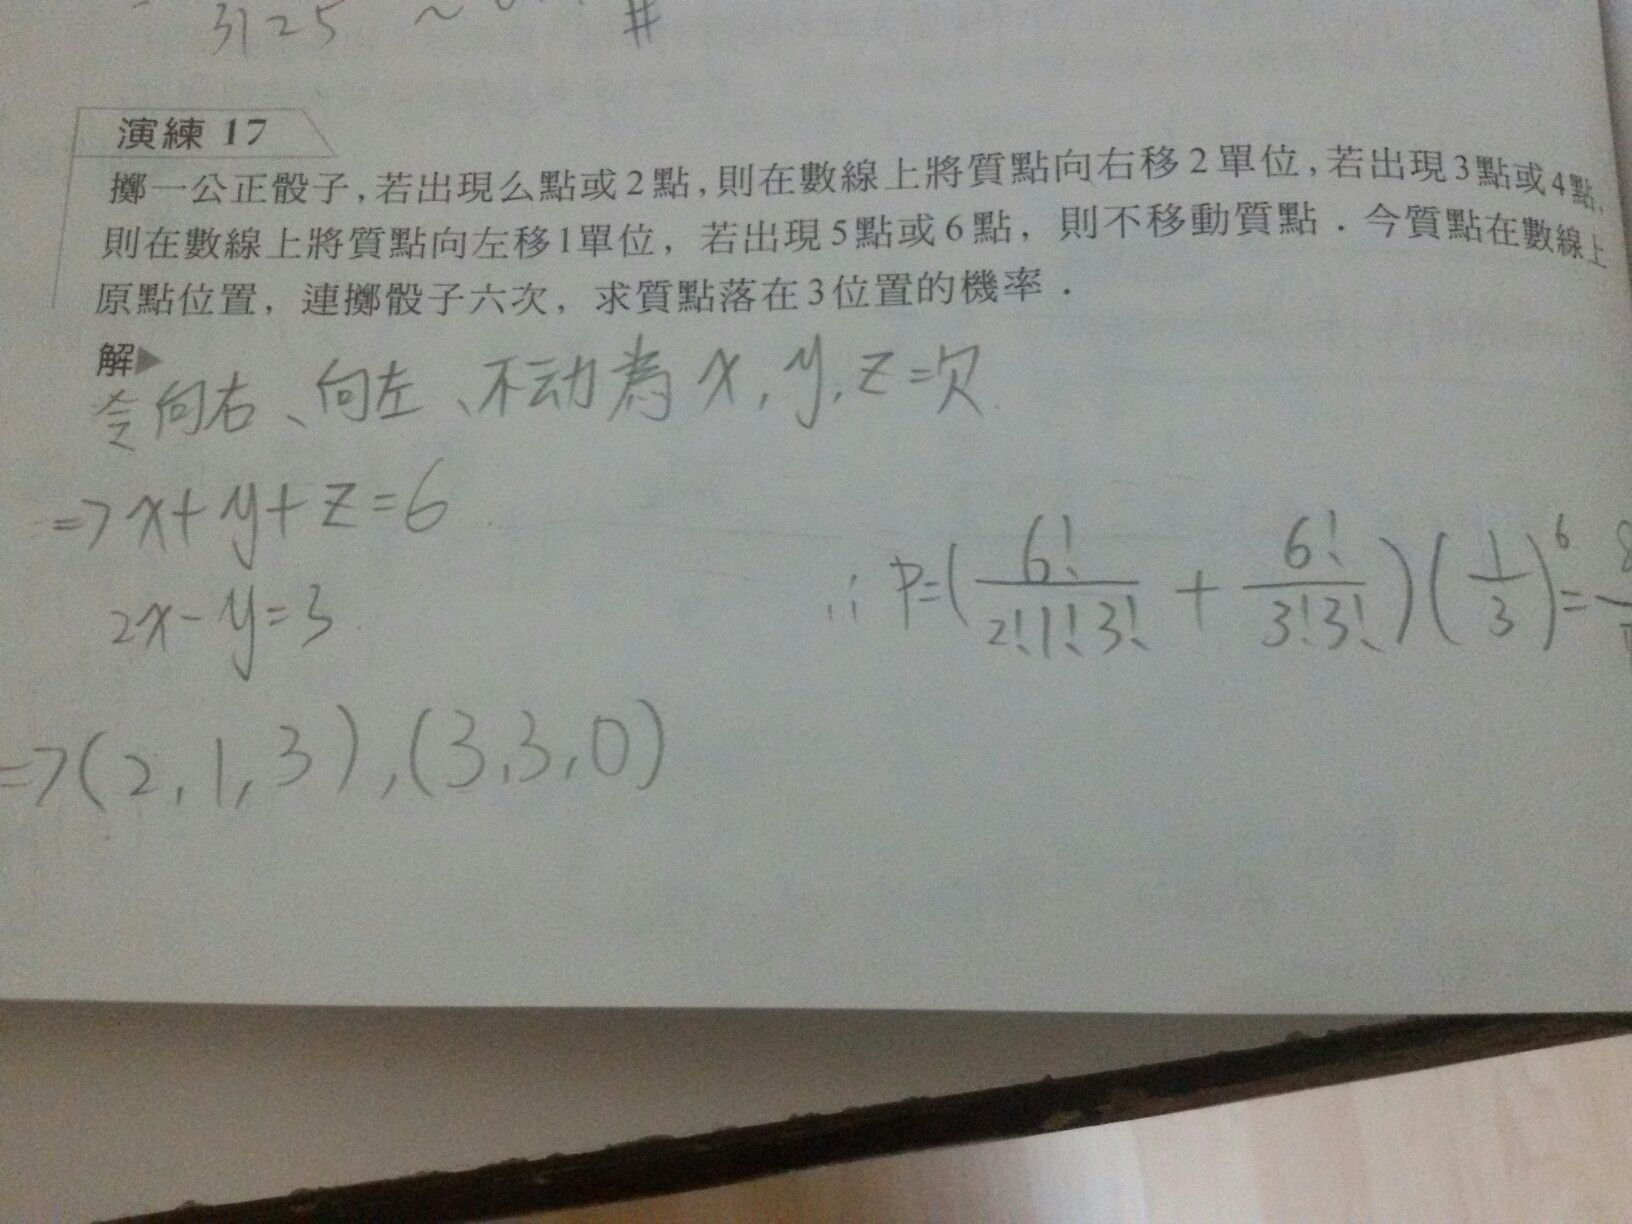 3125 ~
#
演練 17
擲一公正骰子,若出現么點或2點,則在數線上將質點向右移2單位,若出現3點或4點,
則在數線上將質點向左移1單位,若出現5點或6點,則不移動質點.今質點在數線上
原點位置,連擲骰子六次,求質點落在3位置的機率.
解▶
令向右、向左、不动為x,y,z=次
=>x+y+z=6
2x-y=3
=>(2,1,3),(3,3,0)
∴P=(6!/2!1!3!+6!/3!3!)(1/3)^6=